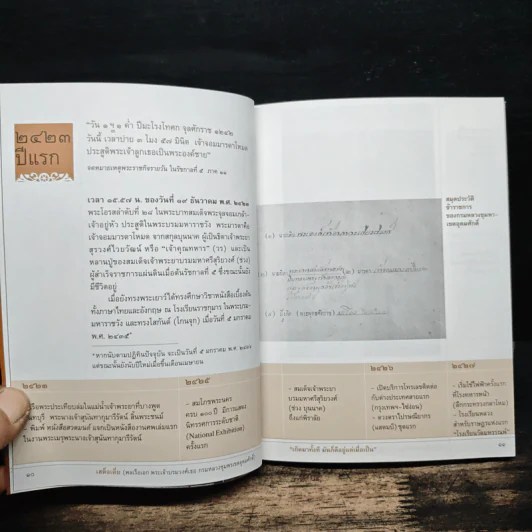 ๒๔๒๓
ปีแรก
"วัน ๑ ๑ ค่ำ ปีมะโรงโทศก จุลศักราช ๑๒๔๒
วันนี้ เวลาบ่าย ๓ โมง ๕๗ มินิต เจ้าจอมมารดาโหมด
ประสูติพระเจ้าลูกเธอเป็นพระองค์ชาย"
จดหมายเหตุพระราชกิจรายวัน ในรัชกาลที่ ๕ ภาค ๑๑
เวลา ๑๕.๕๗ น. ของวันที่ ๑๙ ธันวาคม พ.ศ. ๒๔๒๓
พระโอรสลำดับที่ ๒๘ ในพระบาทสมเด็จพระจุลจอมเกล้า-
เจ้าอยู่หัว ประสูติในพระบรมมหาราชวัง พระมารดาคือ
เจ้าจอมมารดาโหมด จากสกุลบุนนาค ผู้เป็นธิดาเจ้าพระยา
สุรวงศ์ไวยวัฒน์ หรือ "เจ้าคุณทหาร" (วร) และเป็น
หลานปู่ของสมเด็จเจ้าพระยาบรมมหาศรีสุริยวงศ์ (ช่วง)
ผู้สำเร็จราชการแผ่นดินเมื่อต้นรัชกาลที่ ๕ ซึ่งขณะนั้นยัง
มีชีวิตอยู่
เมื่อยังทรงพระเยาว์ได้ทรงศึกษาวิชาหนังสือเบื้องต้น
ทั้งภาษาไทยและอังกฤษ ณ โรงเรียนราชกุมาร ในพระบรม-
มหาราชวัง และทรงโสกันต์ (โกนจุก) เมื่อวันที่ ๕ มกราคม
พ.ศ. ๒๔๓๕*
*หากนับตามปฏิทินปัจจุบัน จะเป็นวันที่ ๕ มกราคม พ.ศ. ๒๔๓๖
แต่ขณะนั้นยังนับปีใหม่เมื่อขึ้นเดือนเมษายน
๒๔๒๓
เรือพระประเทียบล่มในแม่น้ำเจ้าพระยาที่บางพูด
นนทบุรี พระนางเจ้าสุนันทากุมารีรัตน์ สิ้นพระชนม์
พิมพ์ หนังสือสวดมนต์ แจกเป็นหนังสืองานศพเล่มแรก
ในงานพระเมรุพระนางเจ้าสุนันทากุมารีรัตน์
๒๔๒๕
- สมโภชพระนคร
ครบ ๑๐๐ ปี มีการแสดง
นิทรรศการระดับชาติ
(National Exhibition)
ครั้งแรก
๑๐
เสด็จเตี่ย (พลเรือเอก พระเจ้าบรมวงศ์เธอ กรมหลวงชุมพรเขตอุดมศักดิ์)
สมุดประวัติ
ข้าราชการ
ของกรมหลวงชุมพร-
เขตอุดมศักดิ์
- สมเด็จเจ้าพระยา
บรมมหาศรีสุริยวงศ์
(ช่วง บุนนาค)
ถึงแก่พิราลัย
๒๔๒๖
- เปิดบริการโทรเลขติดต่อ
กับต่างประเทศสายแรก
(กรุงเทพฯ-ไซ่ง่อน)
- ดวงตราไปรษณียากร
(แสตมป์) ชุดแรก
๒๔๒๗
- เริ่มใช้ไฟฟ้าครั้งแรก
ที่โรงทหารหน้า
(ตึกกระทรวงกลาโหม)
- โรงเรียนหลวง
สำหรับราษฎรแห่งแรก
"โรงเรียนวัดมหรรณพ์"
"เกิดมาทั้งที มันก็ดีอยู่แต่เมื่อเป็น"
๑๑